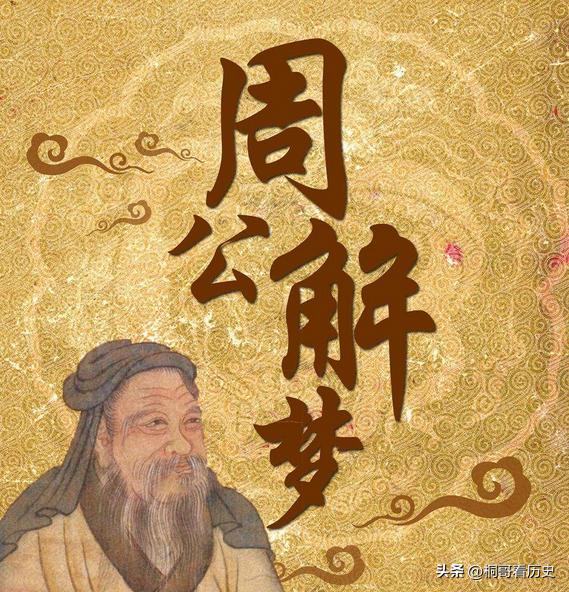 周公解梦
头条 @桐哥看历史